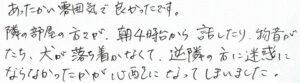 あったかい雰囲気で良かったです。
隣の部屋の方々が、朝4時から話したり、物音が
たち、犬が落ち着かなくて、逆隣の方に迷惑に
ならなかったかが心配になってしまいました。